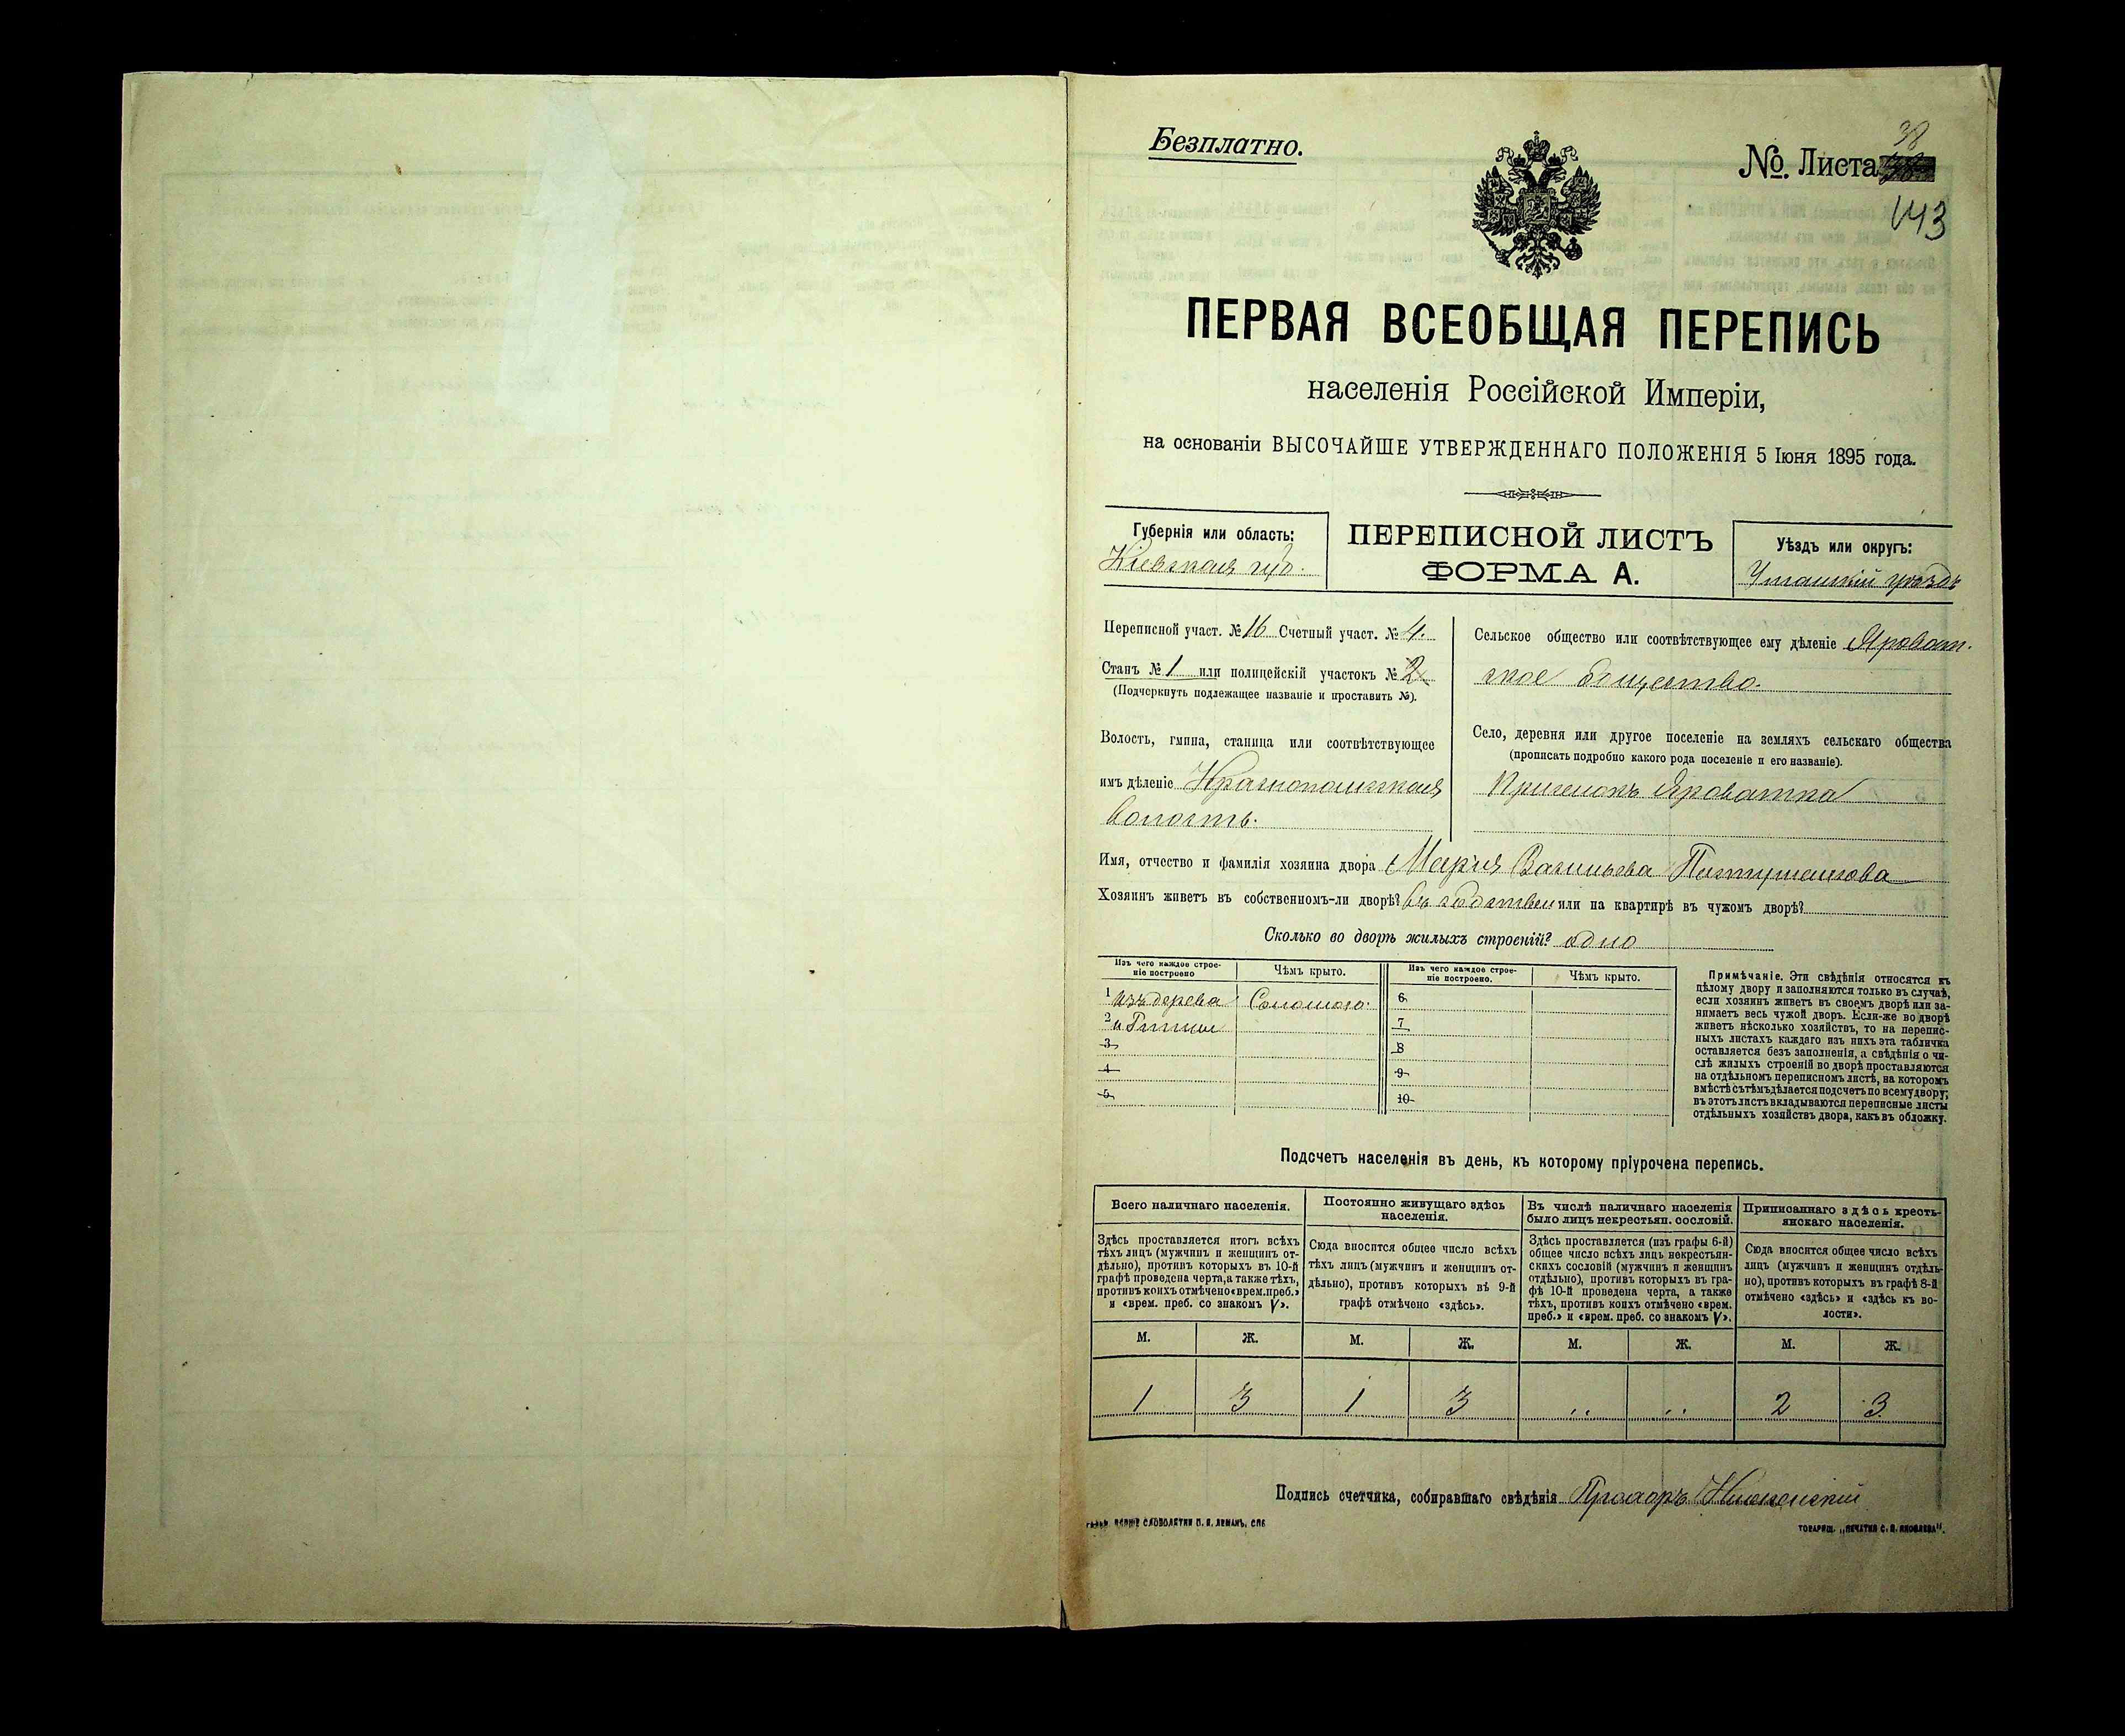 Безплатно.
38
№. Листа
143
ПЕРВАЯ ВСЕОБЩАЯ ПЕРЕПИСЬ
населенія Россійской Имперіи,
на основаніи ВЫСОЧАЙШЕ УТВЕРЖДЕННАГО ПОЛОЖЕНІЯ 5 Іюня 1895 года.
Губернія или область:
Кіевская губ.
ПЕРЕПИСНОЙ ЛИСТЪ
ФОРМА А.
Уѣздъ или округъ:
Уманскій уѣздъ
Переписной участ. № 16 Счетный участ. № 4.
Станъ № 1 или полицейскій участокъ № 2
(Подчеркнуть подлежащее названіе и проставить №).
Волость, гмина, станица или соотвѣтствующее
имъ дѣленіе Краснопольская
волость.
Сельское общество или соотвѣтствующее ему дѣленіе Яроват-
ское общество.
Село, деревня или другое поселеніе на земляхъ сельскаго общества
(прописать подробно какого рода поселеніе и его названіе).
Яроватка
Имя, отчество и фамилія хозяина двора Марія Васильева
Хозяинъ живетъ въ собственномъ-ли дворѣ? въ собствен или на квартирѣ въ чужомъ дворѣ?
Сколько во дворѣ жилыхъ строеній? одно
Изъ чего каждое строе-
ніе построено
Чѣмъ крыто.
Изъ чего каждое строе-
ніе построено.
Чѣмъ крыто.
1 Изъ дерева Соломою. 6
2 и Глины 7
3 8
4 9
5 10
Примѣчаніе. Эти свѣдѣнія относятся къ
цѣлому двору и заполняются только въ случаѣ,
если хозяинъ живетъ въ своемъ дворѣ или за-
нимаетъ весь чужой дворъ. Если-же во дворѣ
живетъ нѣсколько хозяйствъ, то на перепис-
ныхъ листахъ каждаго изъ нихъ эта табличка
оставляется безъ заполненія, а свѣдѣнія о чи-
слѣ жилыхъ строеній во дворѣ проставляются
на отдѣльномъ переписномъ листѣ, на которомъ
вмѣстѣ съ тѣмъ дѣлается подсчетъ по всему двору;
въ этотъ листъ вкладываются переписные листы
отдѣльныхъ хозяйствъ двора, какъ въ обложку.
Подсчетъ населенія въ день, къ которому пріурочена перепись.
Всего наличнаго населенія.
Здѣсь проставляется итогъ всѣхъ
тѣхъ лицъ (мужчинъ и женщинъ от-
дѣльно), противъ которыхъ въ 10-й
графѣ проведена черта, а также тѣхъ,
противъ коихъ отмѣчено «врем. преб.»
и «врем. преб. со знакомъ V».
Постоянно живущаго здѣсь
населенія.
Сюда вносится общее число всѣхъ
тѣхъ лицъ (мужчинъ и женщинъ от-
дѣльно), противъ которыхъ въ 9-й
графѣ отмѣчено «здѣсь».
Въ числѣ наличнаго населенія
было лицъ некрестьян. сословій.
Здѣсь проставляется (изъ графы 6-й)
общее число всѣхъ лицъ некрестьян-
скихъ сословій (мужчинъ и женщинъ
отдѣльно), противъ которыхъ въ гра-
фѣ 10-й проведена черта, а также
тѣхъ, противъ коихъ отмѣчено «врем.
преб.» и «врем. преб. со знакомъ V».
Приписаннаго здѣсь кресть-
янскаго населенія.
Сюда вносится общее число всѣхъ
лицъ (мужчинъ и женщинъ отдѣль-
но), противъ которыхъ въ графѣ 8-й
отмѣчено «здѣсь» и «здѣсь къ во-
лости».
М. Ж. М. Ж. М. Ж. М. Ж.
1 3 1 3 .. .. 2 3
Подпись счетчика, собиравшаго свѣдѣнія Прохоръ
СЛОВОЛИТНИ О. И. ЛЕМАНЪ, СПБ
ТОВАРИЩ. „ПЕЧАТНЯ С. П. ЯКОВЛЕВА“.